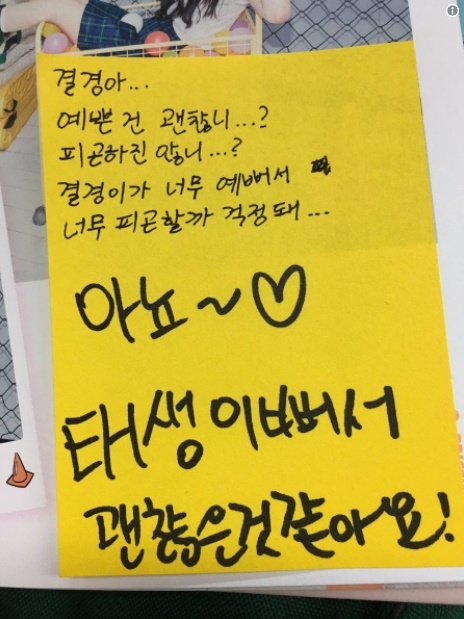 결경아...
예쁜 건 괜찮니...?
피곤하진 않니...?
결경이가 너무 예뻐서
너무 피곤할까 걱정돼...
아뇨~♡
태생이뻐서
괜찮은것같아요!